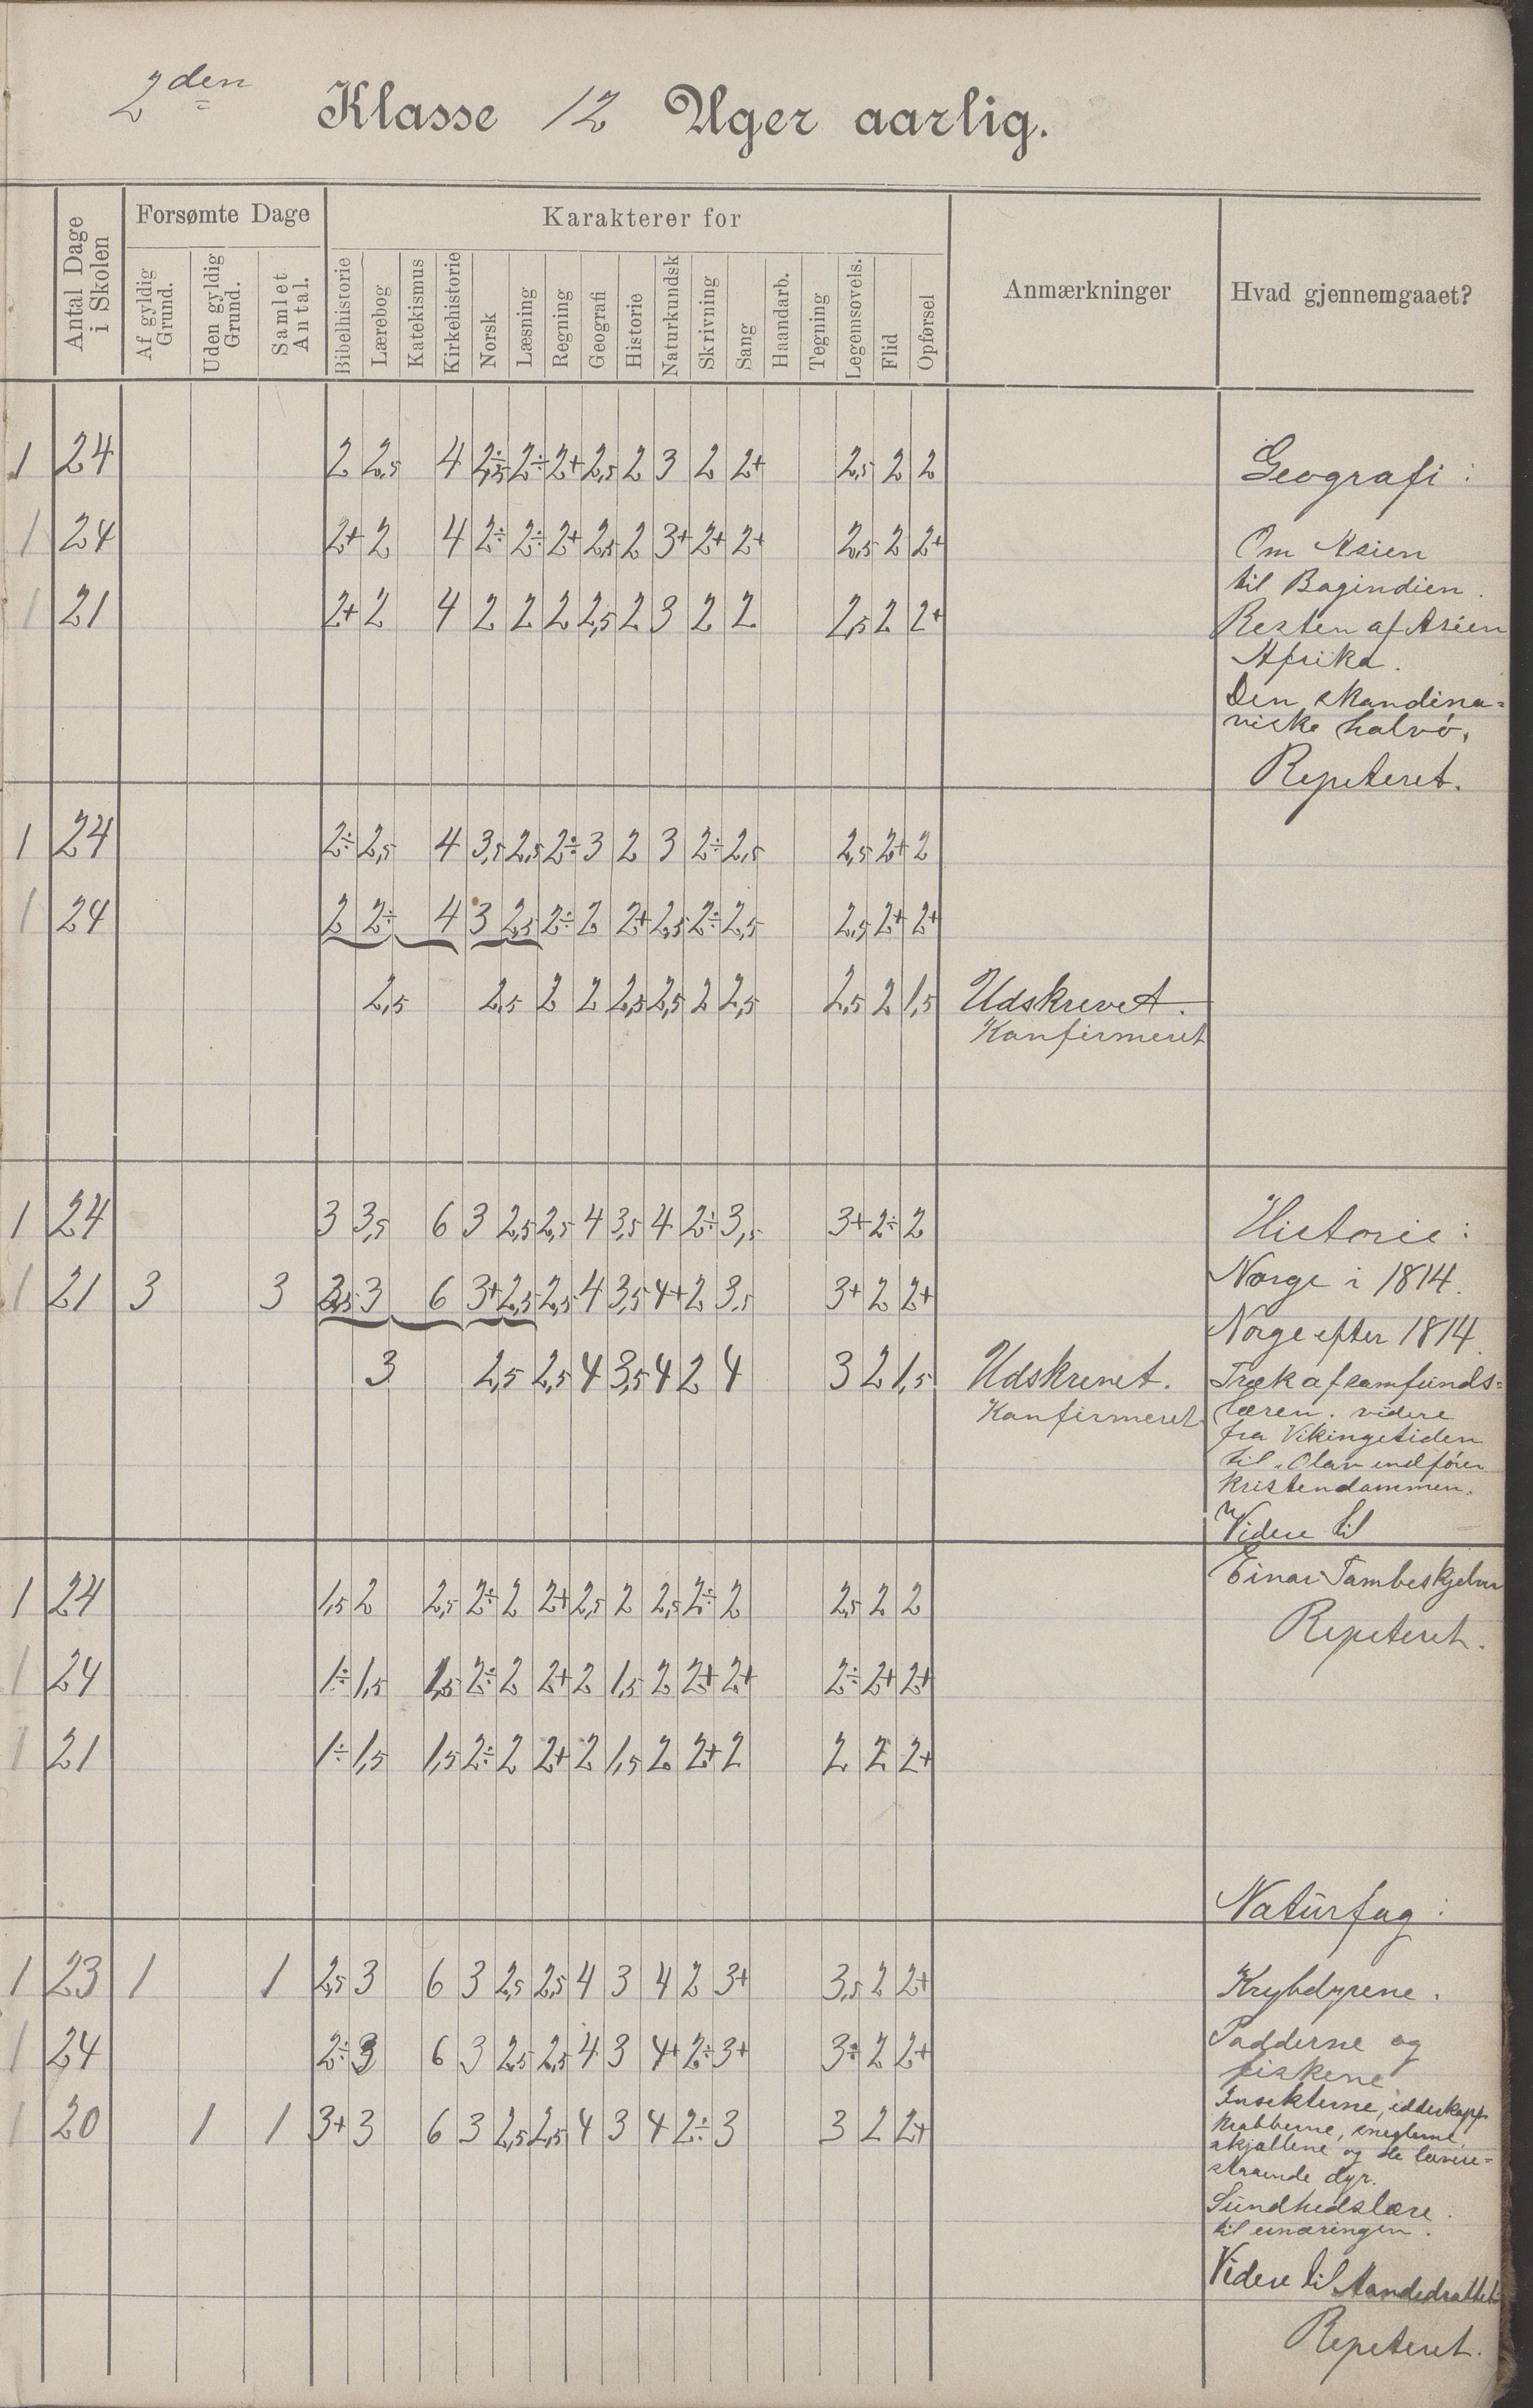 2den Klasse 12 Uger aarlig.
Antal Dage i Skolen
Forsømte Dage
Af gyldig Grund.
Uden gyldig Grund.
Samlet Antal.
Karakterer for
Bibelhistorie
Lærebog
Katekismus
Kirkehistorie
Norsk
Læsning
Regning
Geografi
Historie
Naturkundsk
Skrivning
Sang
Haandarb.
Tegning
Legemsøvels.
Flid
Opførsel
Anmærkninger
Hvad gjennemgaaet?
1 24 2 2,5 4 2÷ 2+ 2,5 2 3 2 2+ 2,5 2 2
Geografi:
1 24 2+ 2 4 2÷ 2÷ 2+ 2,5 2 3+ 2+ 2+ 2,5 2 2+
Om Asien
til Bagindien.
1 21 2+ 2 4 2 2 2 2,5 2 3 2 2 2,5 2 2+
Resten af Asien
Afrika.
Den skandina=
viske halvø,
Repeteret.
1 24 2÷ 2,5 4 3,5 2,5 2÷ 3 2 3 2÷ 2,5 2,5 2+ 2
1 24 2 2÷ 4 3 2,5 2÷ 2 2+ 2,5 2÷ 2,5 2,5 2+ 2+
2,5 2,5 2 2 2,5 2,5 2 2,5 2,5 2 1,5 Udskrevet.
Konfirmeret
1 24 3 3,5 6 3 2,5 2,5 4 3,5 4 2÷ 3,5 3+ 2÷ 2
Historie:
1 21 3 3 3 6 3+ 2,5 2,5 4 3,5 4+ 2 3,5 3+ 2 2+
Norge i 1814.
Norge efter 1814.
3 2,5 2,5 4 3,5 4 2 4 3 2 1,5 Udskrevet.
Træk af samfunds=
Konfirmeret
læren. videre
fra Vikingetiden
til "Olav indfører
kristendommen.
Videre til
Einar Tambeskjelver
1 24 1,5 2 2,5 2÷ 2 2+ 2,5 2 2,5 2÷ 2 2,5 2 2
Repeteret.
1 24 1÷ 1,5 1,5 2÷ 2 2+ 2 1,5 2 2+ 2+ 2÷ 2+ 2+
1 21 1÷ 1,5 1,5 2÷ 2 2+ 2 1,5 2 2+ 2 2 2 2+
Naturfag:
1 23 1 1 2,5 3 6 3 2,5 2,5 4 3 4 2 3+ 3,5 2 2+
Krybdyrene.
1 24 2÷ 3 6 3 2,5 2,5 4 3 4+ 2÷ 3+ 3÷ 2 2+
Padderne og
fiskene
1 20 1 1 3+ 3 6 3 2,5 2,5 4 3 4 2÷ 3 3 2 2+
Insekterne, edderkopp
krabberne, sneglerne,
skjællene og de lavere=
staaende dyr.
Sundhedslære.
til ernæringen.
Videre til Aandedrættet
Repeteret.